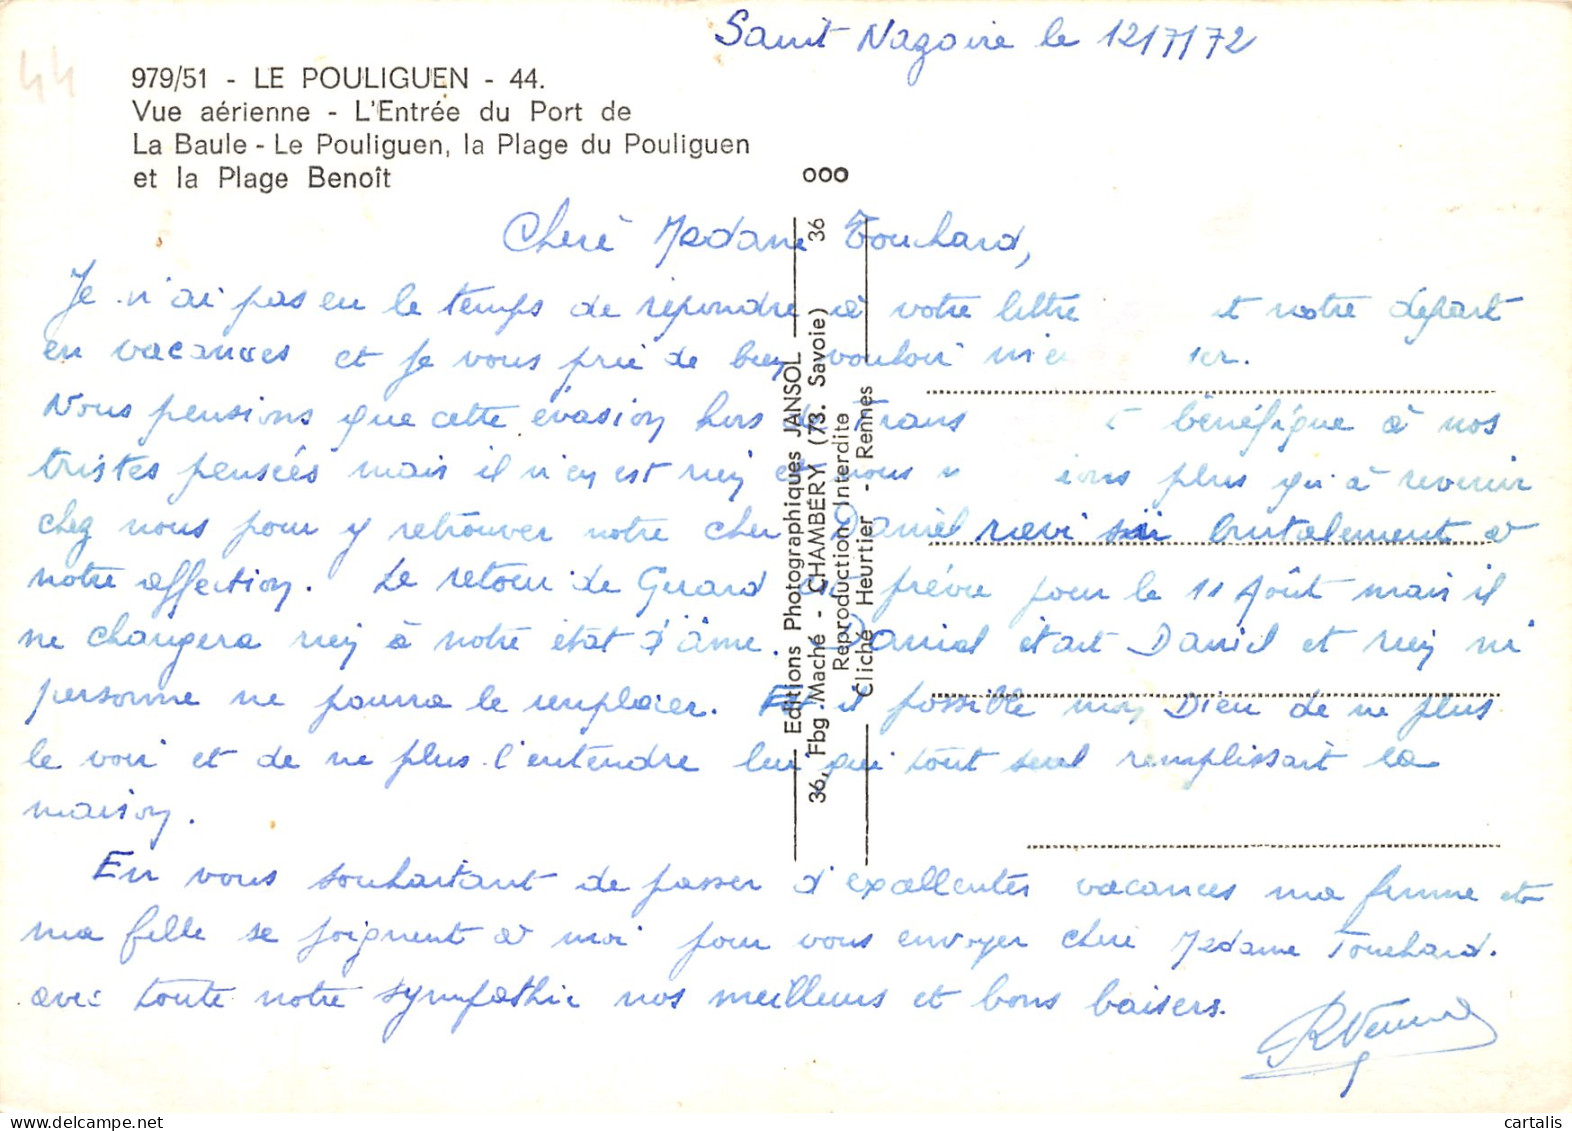 Saint Nazaire le 12/7/72
44
979/51 - LE POULIGUEN - 44.
Vue aérienne - L'Entrée du Port de
La Baule - Le Pouliguen, la Plage du Pouliguen
et la Plage Benoît
Cherè Madame Touchard,
Je n'ai pas eu le temps de répondre à votre lettre t notre départ
en vacances et je vous prie de bien vouloir m'e er.
Nous pensions que cette évasion hors de Trans bénéfique à nos
tristes pensées mais il n'en est rien et nous n ions plus qu'à revenir
chez nous pour y retrouver notre cher Daniel ravi si brutalement à
notre affection. Le retour de Gérard est prévu pour le 11 Août mais il
ne changera rien à notre état d'âme. Daniel était Daniel et rien ni
personne ne pourra le remplacer. Est il possible mon Dieu de ne plus
le voir et de ne plus l'entendre lui qui tout seul remplissait la
maison.
En vous souhaitant de passer d'excellentes vacances ma femme et
ma fille se joignent à moi pour vous envoyer chère Madame Touchard.
avec toute notre sympathie nos meilleurs et bons baisers.
000
Editions Photographiques JANSOL
36, Fbg Maché - CHAMBÉRY (73. Savoie) 36
Reproduction Interdite
Cliché Heurtier - Rennes
cartalis